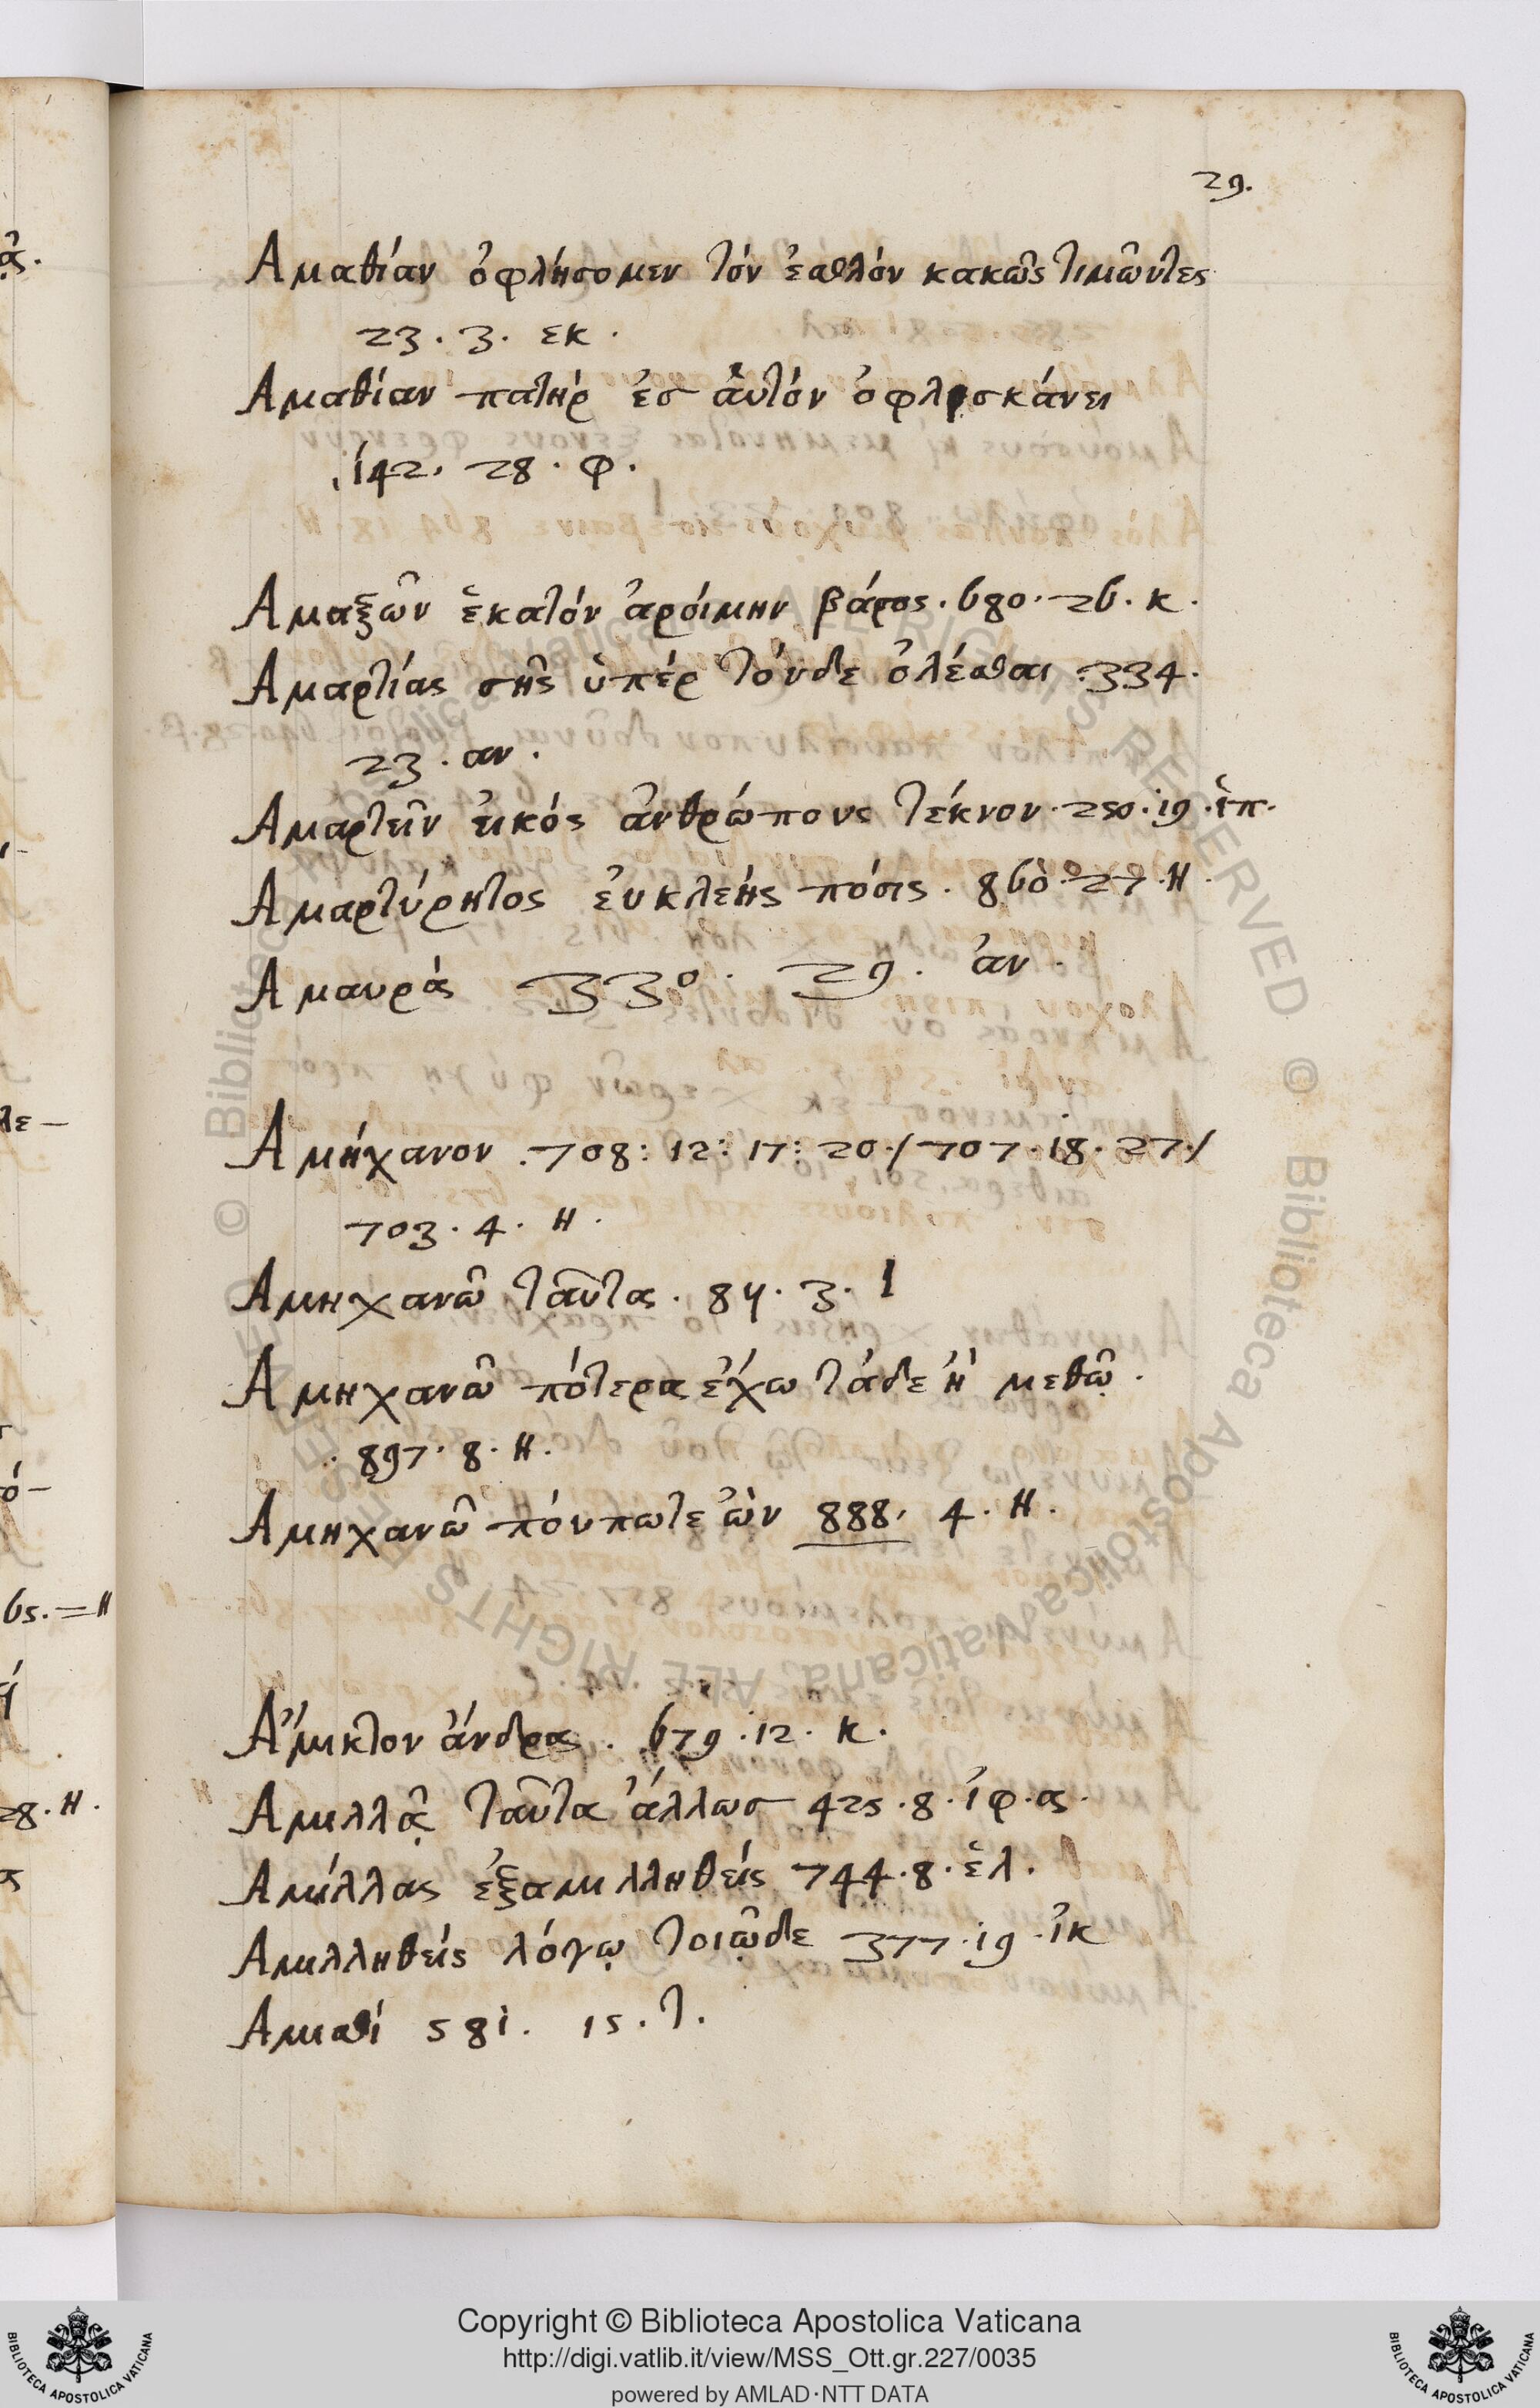 29.
Αμαθίαν ὀφλήσομεν τόν ἐσθλόν κακῶς τιμῶντες
23. 3. εκ.
Αμαθίαν πατήρ ἐσ ἀυτόν ὀφλισκάνει
142. 28. φ.
Αμαξῶν ἑκατόν ἀροίμην βάρος. 680. 26. κ.
Αμαρτίας σῆς ὑπέρ τόνδε ὀλέσθαι 334.
23. αν.
Αμαρτεῖν εἰκός ἀνθρώπους τέκνον. 250. 19. ἱπ.
Αμαρτύρητος ἐυκλεής πόσις. 860. 27. Η.
Αμαυρὰς 330. 29. ἀν.
Αμήχανον. 708: 12: 17: 20./ 707. 18. 27./
703. 4. Η.
Αμηχανῶ ταῦτας. 84. 3. Ι
Αμηχανῶ πότερα ἐχω τάδε ἠ μεθῶ.
897. 8. Η.
Αμηχανῶ πόνπωτε ὠν 888. 4. Η.
Αμικτον ἀνδρα. 679. 12. κ.
Αμιλλᾷ ταῦτα ἄλλωσ 425. 8. ἰφ. α.
Αμίλλας ἐξαμιλληθείς 744. 8. ἑλ.
Αμιλληθείς λόγῳ τοιῷδε 377. 19. ἱκ
Αμισθί 581. 15. τ.
ᾷ.
λε-
ό-
65.=Η
28. Η.
Copyright © Biblioteca Apostolica Vaticana
http://digi.vatlib.it/view/MSS_Ott.gr.227/0035
powered by AMLAD·NTT DATA
BIBLIOTECA APOSTOLICA VATICANA
BIBLIOTECA APOSTOLICA VATICANA